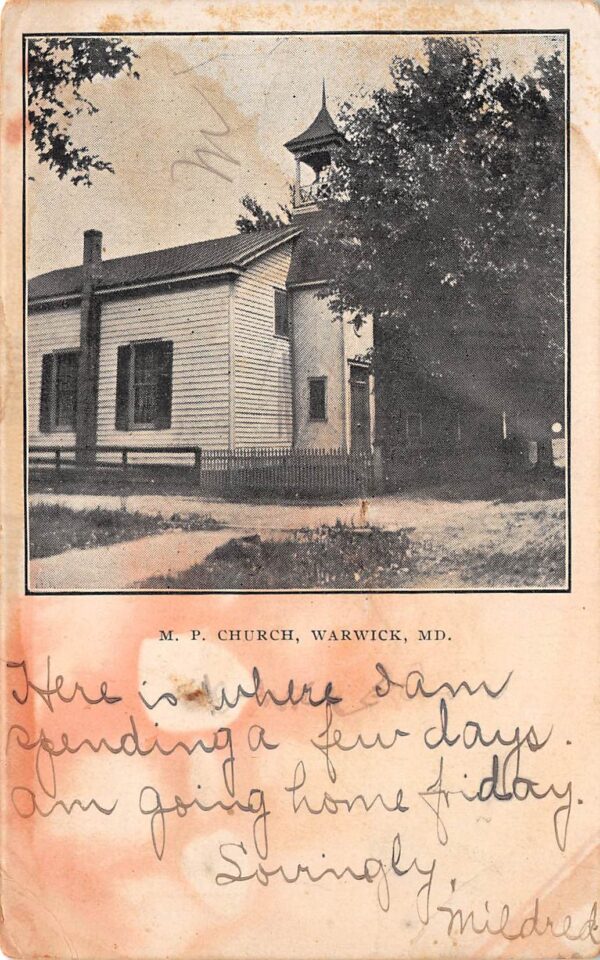 M
M. P. CHURCH, WARWICK, MD.
Here is where I am
spending a few days.
am going home friday.
Lovingly,
Mildred